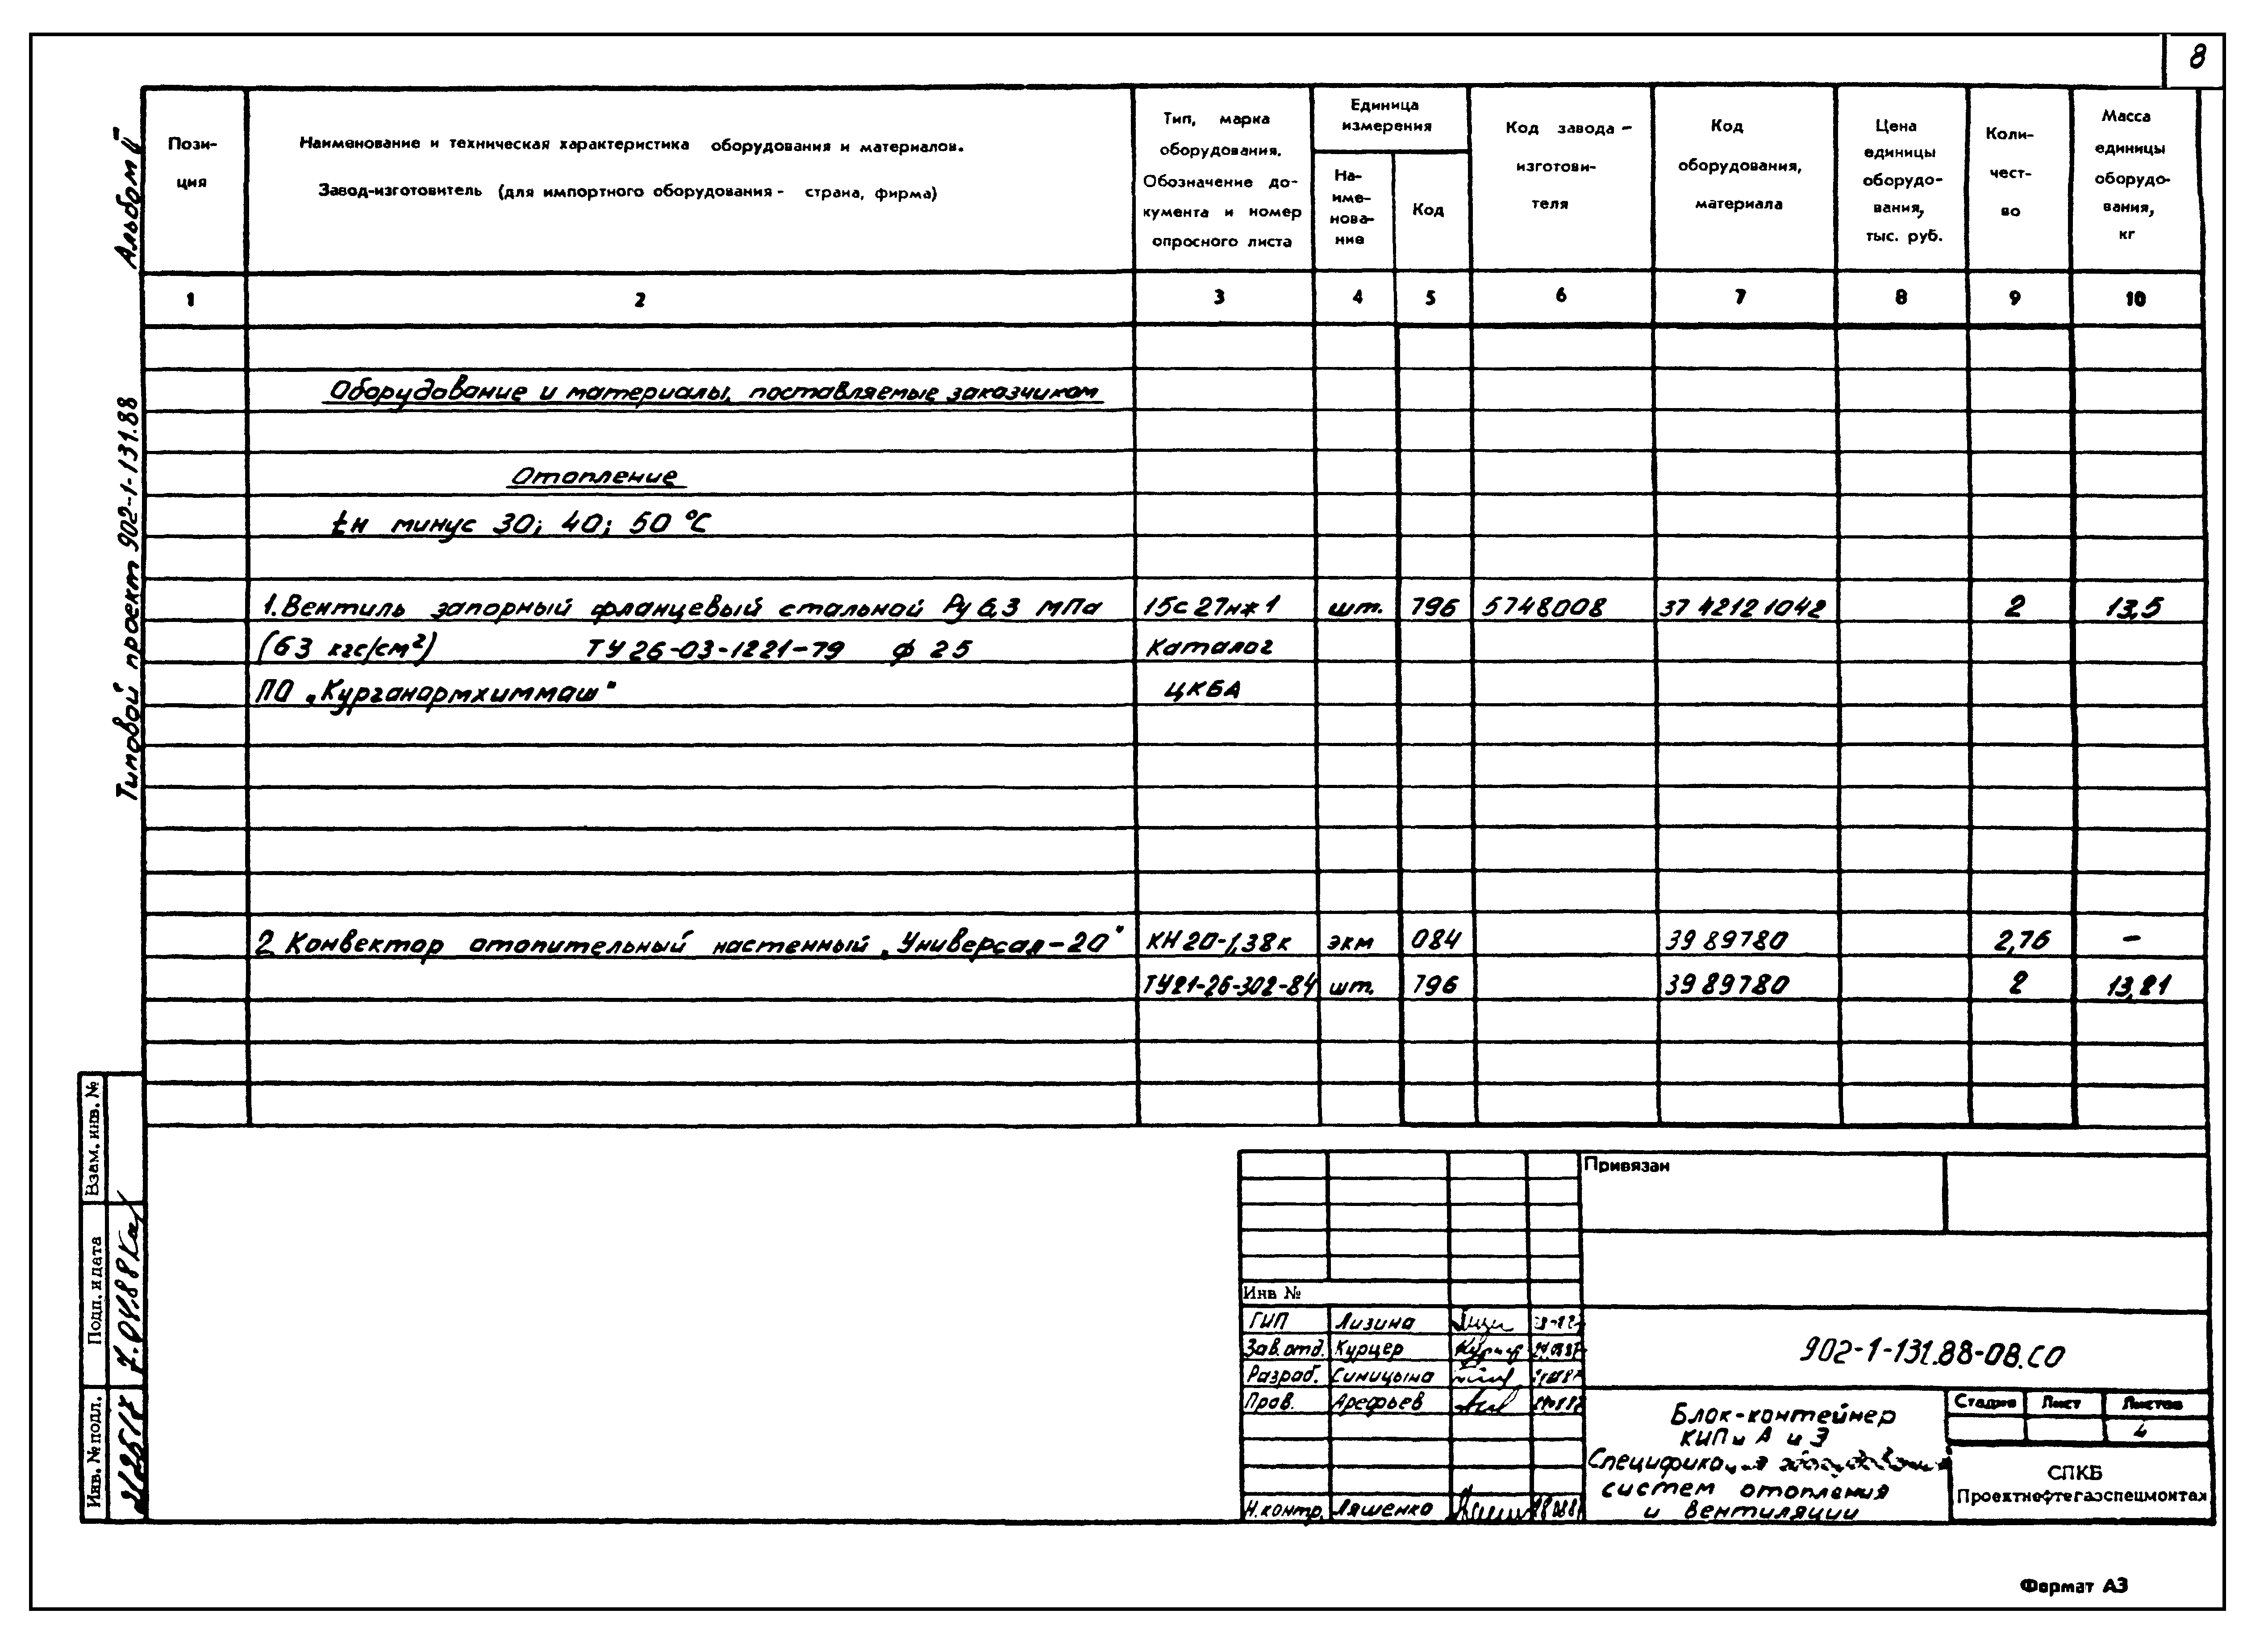 8
Альбом V
Типовой проект 902-1-131.88
Пози-
ция
Наименование и техническая характеристика оборудования и материалов.
Завод-изготовитель (для импортного оборудования - страна, фирма)
Тип, марка
оборудования.
Обозначение до-
кумента и номер
опросного листа
Единица
измерения
На-
име-
нова-
ние
Код
Код завода-
изготови-
теля
Код
оборудования,
материала
Цена
единицы
оборудо-
вания,
тыс. руб.
Коли-
чест-
во
Масса
единицы
оборудо-
вания,
кг
1 2 3 4 5 6 7 8 9 10
Оборудование и материалы, поставляемые заказчиком
Отопление
tн минус 30; 40; 50 °С
1. Вентиль запорный фланцевый стальной Ру 6,3 МПа 15с27нж1 шт. 796 5748008 37 4212 1042 2 13,5
(63 кгс/см²) ТУ 26-03-1221-79 ф 25 Каталог
ПО „Курганармхиммаш" ЦКБА
2 Конвектор отопительный настенный „Универсал-20" КН20-1,38к экм 084 39 89780 2,76 -
ТУ21-26-302-84 шт. 796 39 89780 2 13,21
Взам. инв. №
Подп. и дата
7.04.88
Инв. № подл.
Привязан
Инв №
ГИП Лизина
Зав.отд. Курцер
Разраб. Синицына
Пров. Арефьев
Н.контр. Ляшенко
902-1-131.88-08.СО
Блок-контейнер
КИП и А и Э
Спецификация оборудования
систем отопления
и вентиляции
Стадия Лист Листов
4
СПКБ
Проектнефтегазспецмонтаж
Формат А3